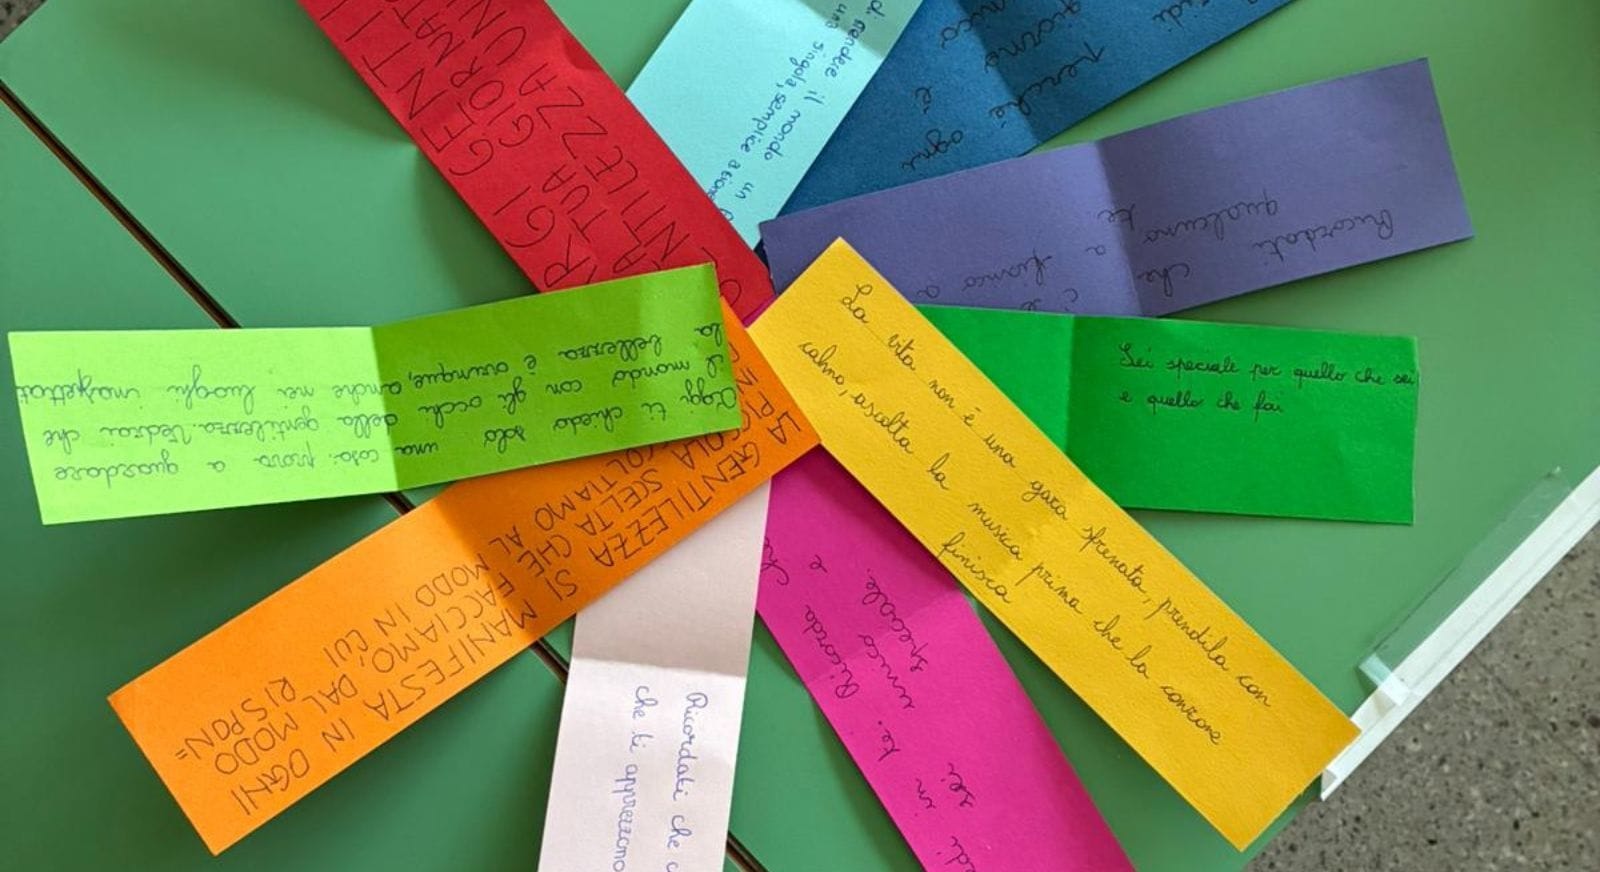 La vita non è una gara sfrenata, prendila con
calma, ascolta la musica prima che la canzone
finisca
Sei speciale per quello che sei
e quello che fai
Ricordati che
qualcuno
a fianco a
te
perché ogni
giorno è
di rendere il mondo un
una singola, semplice azione
GENTI
GIORNAT
TUA
NTILEZZA
Oggi ti chiedo solo una cosa: prova a guardare
il mondo con gli occhi della gentilezza. Vedrai che
la bellezza è ovunque, anche nei luoghi inaspettat
LA GENTILEZZA SI MANIFESTA IN OGNI
PICCOLA SCELTA CHE FACCIAMO, DAL MODO
AL MODO IN CUI
RISPON=
Ricordati che c
che ti apprezzano
in te. Ricorda che
sei unico e
speciale.